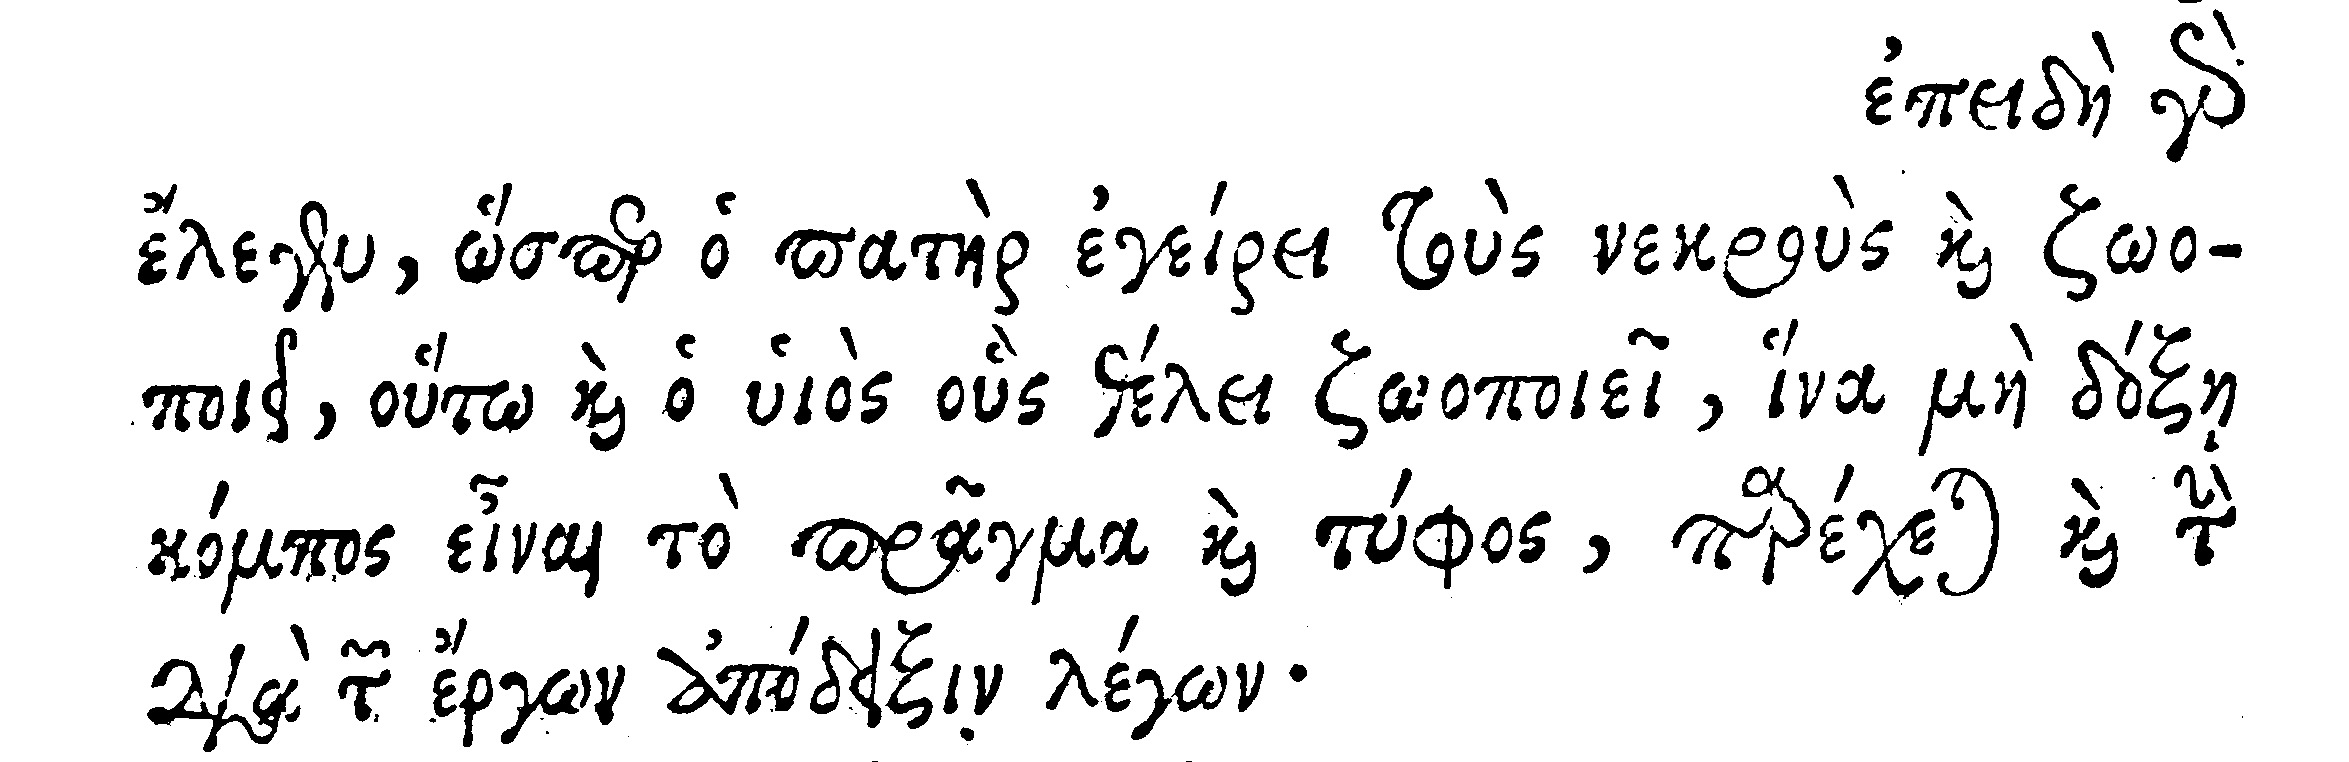 ἐπειδὴ γὰρ
ἔλεγεν, ὥσπερ ὁ πατὴρ ἐγείρει τοὺς νεκροὺς καὶ ζωο-
ποιεῖ, οὕτω καὶ ὁ υἱὸς οὓς θέλει ζωοποιεῖ, ἵνα μὴ δόξῃ
κόμπος εἶναι τὸ πρᾶγμα καὶ τύφος, παρέχεται καὶ τὴν
διὰ τῶν ἔργων ἀπόδειξιν λέγων·